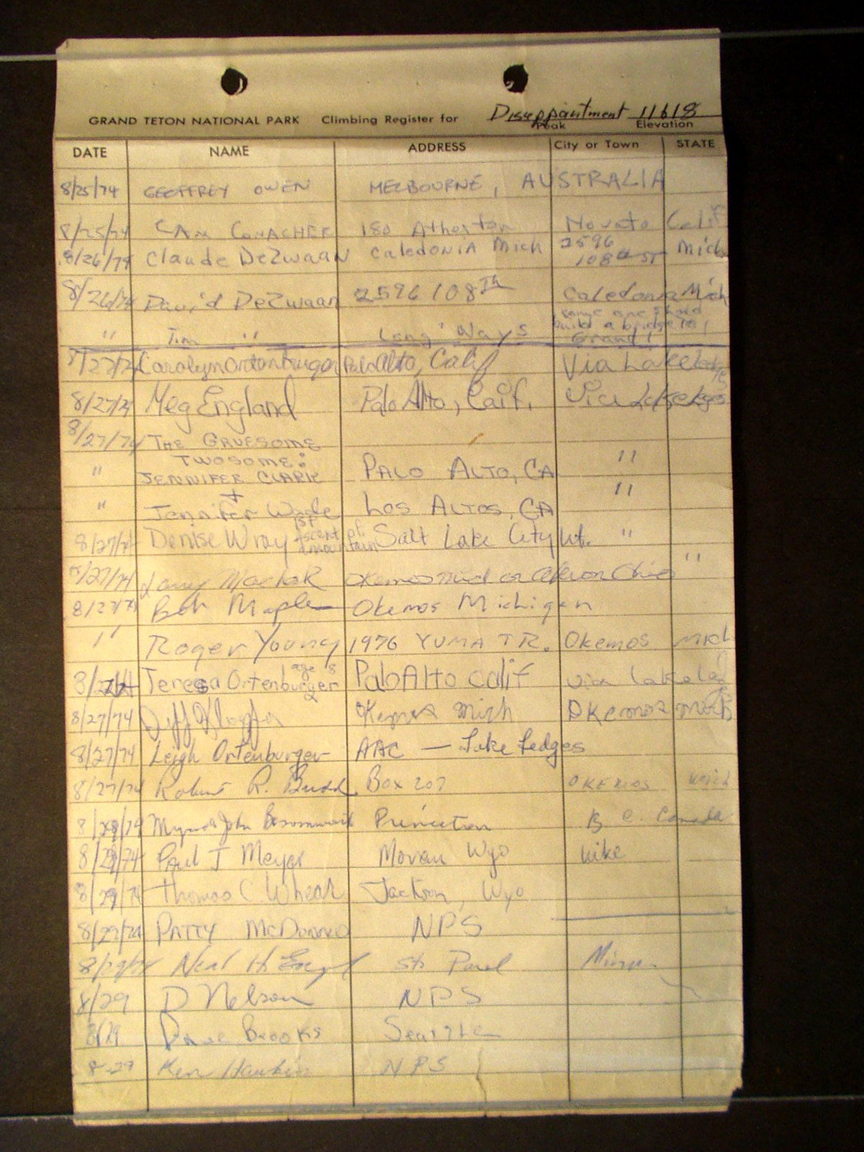 Disappointment 11618
GRAND TETON NATIONAL PARK Climbing Register for Peak Elevation
DATE NAME ADDRESS City or Town STATE
8/25/74 GEOFFREY OWEN MELBOURNE, AUSTRALIA
8/25/74 SAM CONACHER 180 Atherton Novato Calif
8/26/74 Claude DeZwaan Caledonia Mich 2596 108th ST Mich
8/26/74 David DeZwaan 2596 108th Caledonia Mich
" Jim " Long Ways some one should build a bridge to Grand!
8/27/74 Carolyn Ortenburger Palo Alto, Calif Via Lake Ledges
8/27/74 Meg England Palo Alto, Calif. Via Lake Ledges
8/27/74 THE GRUESOME
TWOSOME:
" JENNIFER CLARK PALO ALTO, CA "
+
" Jennifer Wade Los Altos, CA "
8/27/74 Denise Wray 1st ascent of mountain Salt Lake City Ut. "
8/27/74 Larry Okemos Mich or Akron Ohio "
8/27/74 Bob Maple Okemos Michigan
" Roger Young 1976 YUMA TR. Okemos Mich
8/27/74 Teresa Ortenburger age 8 Palo Alto Calif via Lake Led
8/27/74 Jeff Okemos Mich Okemos Mich
8/27/74 Leigh Ortenburger AAC — Lake Ledges
8/27/74 Robert R. Budd Box 207 OKEMOS Mich
8/28/74 John Princeton B.C. Canada
8/29/74 Paul J Meyer Moran Wyo
8/29/74 Thomas C Wheat Jackson, Wyo
8/29/74 PATTY McDonald NPS
8/29/74 Neal H St Paul Minn.
8/29 D Nelson NPS
8/29 Dave Brooks Seattle
8-29 Ken NPS